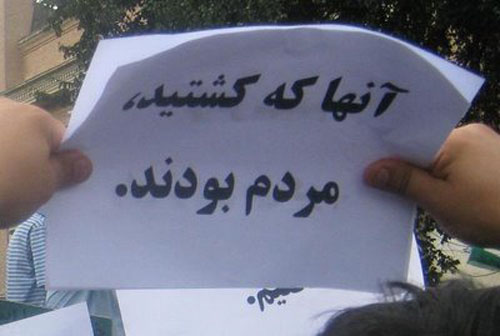 آنها که کشتید،
مردم بودند.